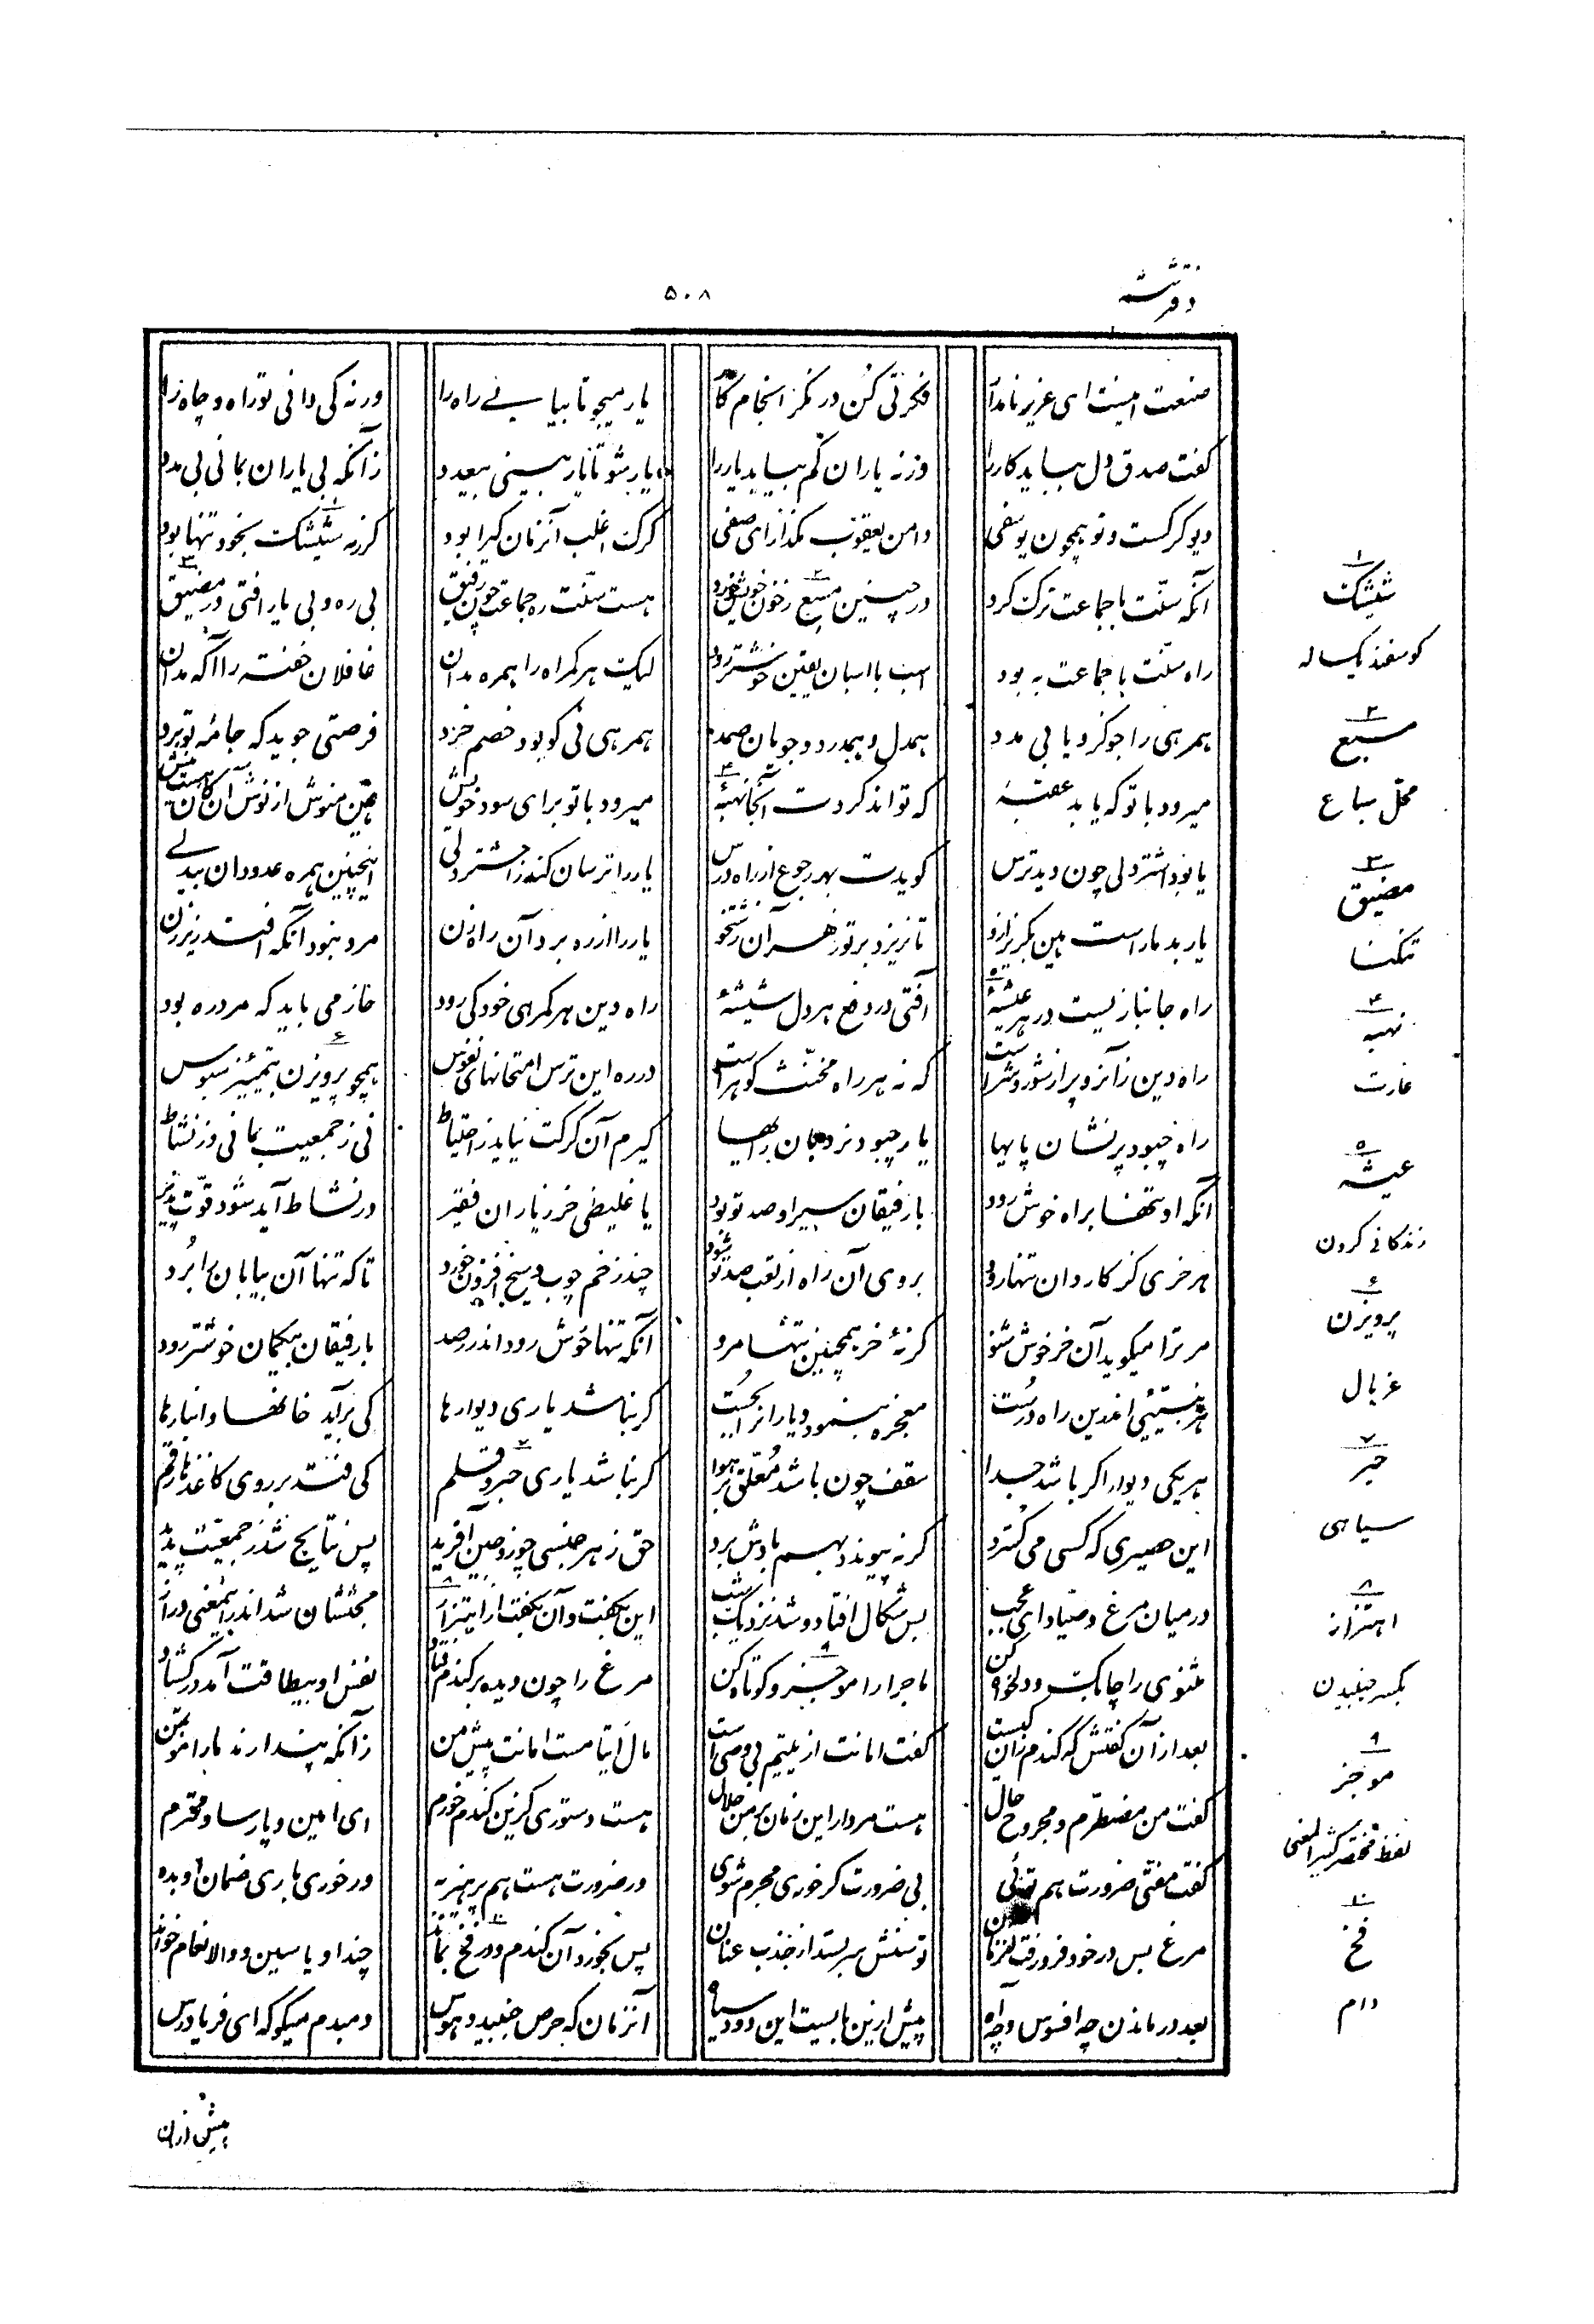 دفتر ششم
۵۰۸
صنعت اینست ای عزیز نامدار فکرتی کن در نگر انجام کار یار میجو تا بیابی راه را ورنه کی دانی تو راه و چاه را
گفت صدق دل بباید کار را ورنه یاران کم نیاید یار را یار شو تا یار بینی بیعدد زانکه بی یاران بمانی بی مدد
دیو گرگست و تو همچون یوسفی دامن یعقوب مگذار ای صفی گرگ اغلب آنزمان گیرا بود کز رمه شیشک بخود تنها بود
آنکه سنّت با جماعت ترک کرد در چنین مسبع ز خون خویش خورد هست سنّت ره جماعت چون رفیق بی ره و بی یار افتی در مضیق
راه سنّت با جماعت به بود اسب با اسبان یقین خوشتر رود لیک هر گمراه را همره مدان غافلان خفته را آگه مدان
همرهی را جو کزو یابی مدد همدل و همدرد و جویان صمد همرهی نی کو بود خصم خرد فرصتی جوید که جامهٔ تو برد
میرود با تو که یابد عقبهٔ که تواند کردت آنجا نهبهٔ میرود با تو برای سود خویش هین منوش از نوش آن کانهست نیش
یا بود اشتر دلی چون دید ترس گویدت بهر رجوع از راه درس یار را ترسان کند ز اشتر دلی اینچنین همره عدو دان نی ولی
یار بد مار است هین بگریز ازو تا نریزد بر تو زهر آن زشتخو یار را از ره برد آن راه زن مرد نبود آنکه افتد زیر زن
راه جانبازیست در هر عیشهٔ آفتی در دفع هر دل شیشهٔ راه دین هر گمرهی خود کی رود حازمی باید که مرد ره بود
راه دین زانرو پر از شور و شر است که نه هر راه مخنّث گوهر است در ره این ترس امتحانهای نفوس همچو پرویزن بتمییز سبوس
راه چبود پر نشان پایها یار چبود نردبان رایها گیرم آن گرگت نیابد ز احتیاط نی ز جمعیت بمانی در نشاط
آنکه او تنها براه خوش رود با رفیقان سیر او صد تو بود با غلیظی خر ز یاران فقیر در نشاط آید شود قوّت پذیر
هر خری کز کاروان تنها رود بر وی آن راه از تعب صد تو شود چند زخم چوب و سیخ افزون خورد تا که تنها آن بیابان را برد
مر ترا میگوید آن خر خوش شنو گر نهٔ خر همچنین تنها مرو آنکه تنها خوش رود اندر رصد با رفیقان بیگمان خوشتر رود
هر نبیئی اندین راه درست معجزه بنمود و یارانرا بجست گر نباشد یاری دیوارها کی برآید خانها و انبارها
هر یکی دیوار اگر باشد جدا سقف چون باشد معلّق بر هوا گر نباشد یاری حبر و قلم کی فتد بر روی کاغذها رقم
این حصیری که کسی می گسترد گر نه پیوندد بهم بادش برد حق ز هر جنسی چو زوجین آفرید پس نتایج شد ز جمعیّت پدید
در میان مرغ و صیاد ای عجب بس شکال افتاد و شد نزدیک شب این بگفت و آن بگفت از اهتزاز بحثشان شد اندر اینمعنی دراز
مثنوی را چابک و دلخواه کن ماجرا را موجز و کوتاه کن مرغ را چون دیده بر گندم فتاد نفس او بیطاقت آمد در گشاد
بعد از آن گفتش که گندم زان کیست گفت امانت از یتیم بی وصی است مال ایتامست امانت پیش من زانکه پندارند ما را مؤتمن
گفت من مضطرّم و مجروح حال هست مردار این زمان بر من حلال هست دستوری کزین گندم خورم ای امین و پارسا و محترم
گفت مفتی ضرورت هم توئی بی ضرورت گر خوری مجرم شوی ور ضرورت هست هم پرهیز به ور خوری باری ضمان او بده
مرغ بس در خود فرو رفت آنزمان توسنش سر بستد از جذب عنان پس بخورد آن گندم و در فخ بماند چند او یاسین و والانعام خواند
بعد درماندن چه افسوس و چه آه پیش ازین بایست این دود سیاه آنزمان که حرص جنبید و هوس دمبدم میگو که ای فریادرس
۱
شیشک
گوسفند یکساله
۲
مسبع
محل سباع
۳
مضیق
تنگنا
۴
نهبه
غارت
۵
عیشه
زندگانی کردن
۶
پرویزن
غربال
۷
حبر
سیاهی
۸
اهتزاز
جنبیدن
۹
موجز
لفظ مختصر کثیر المعنی
۱۰
فخ
دام
پیش ازین